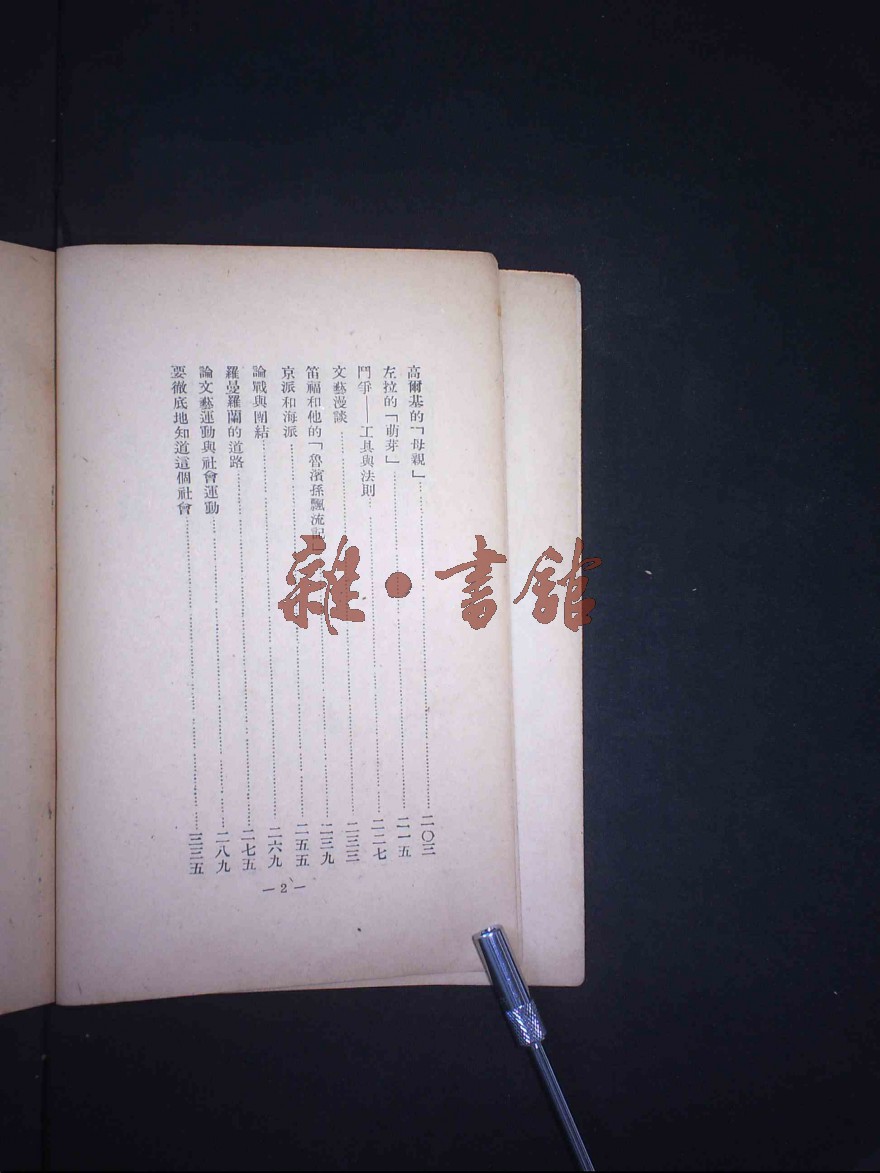 高爾基的「母親」……二〇三
左拉的「萌芽」……二一五
鬥爭——工具與法則……二二七
文藝漫談……二三三
笛福和他的「魯濱孫飄流記」……二三九
京派和海派……二五五
論戰與團結……二六九
羅曼羅蘭的道路……二七五
論文藝運動與社會運動……二八九
要徹底地知道這個社會……三三五
—2—
雜·書館